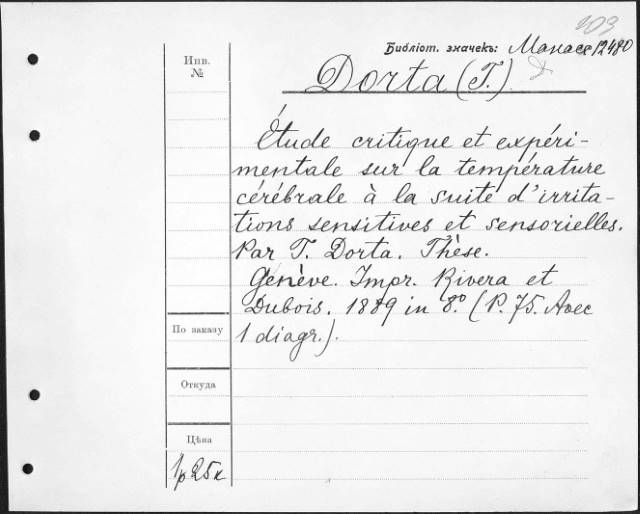 103
Библіот. значекъ: Манасс 12480
Инв.
№
Dorta (T.)
Étude critique et expéri-
mentale sur la température
cérébrale à la suite d'irrita-
tions sensitives et sensorielles.
Par T. Dorta. Thèse.
Genève. Impr. Rivera et
Dubois. 1889 in 8.º (P. 75. Avec
1 diagr.).
По заказу
Откуда
Цѣна
1р 25к